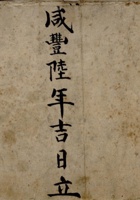 咸豐陸年吉日立